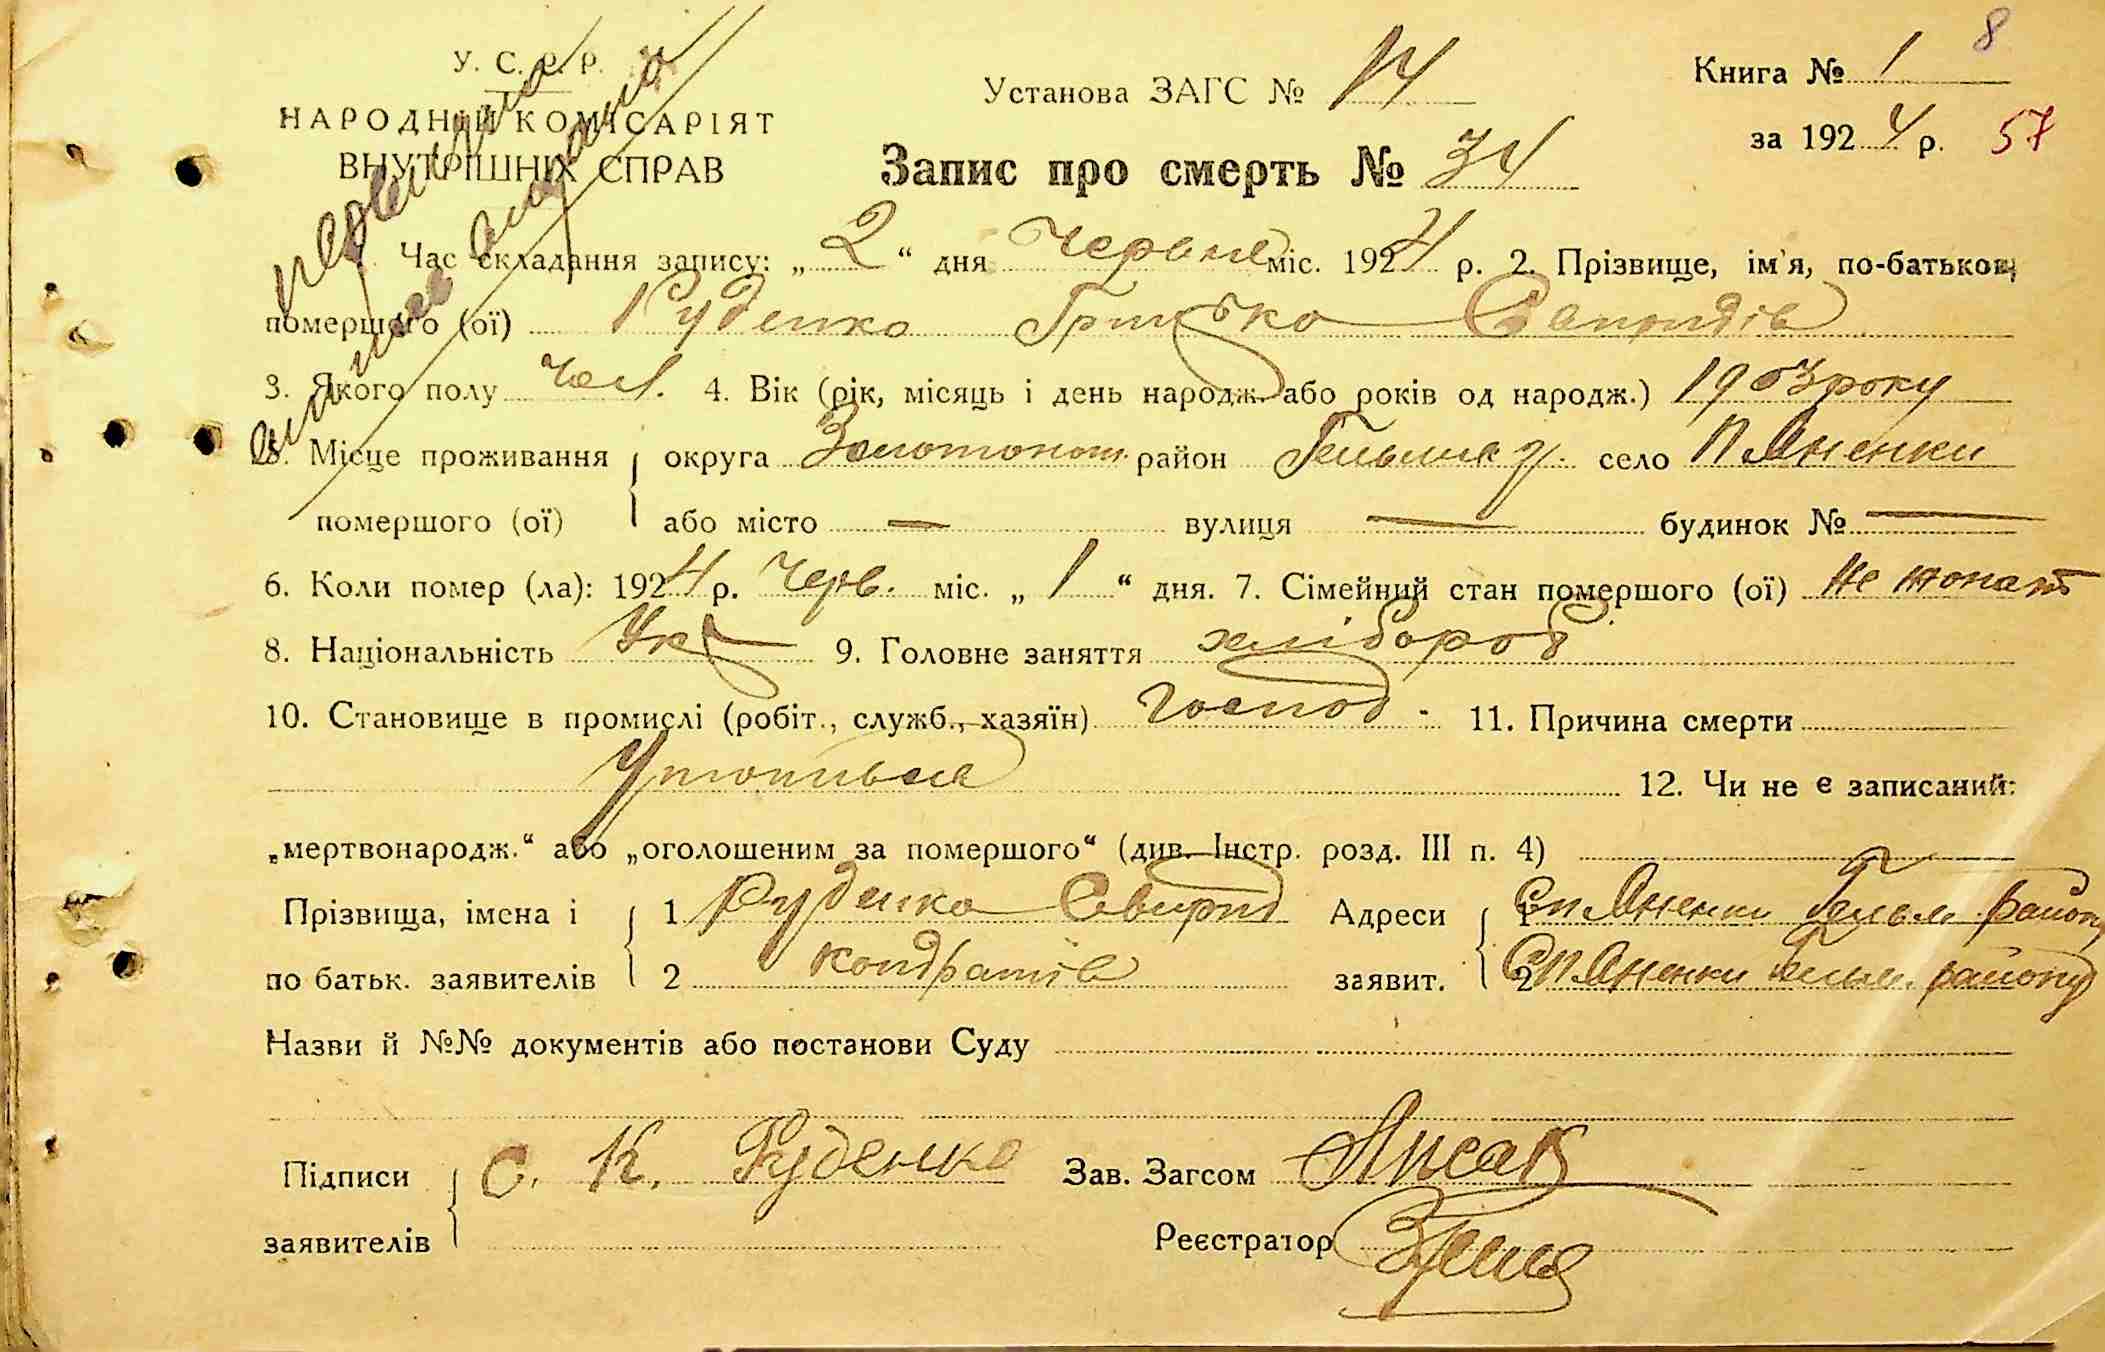 8
У. С. Р. Р.
НАРОДНІЙ КОМІСАРІЯТ
ВНУТРІШНІХ СПРАВ
Установа ЗАГС № 14
Книга № 1
за 1924 р. 57
Запис про смерть № 34
Час складання запису: „2“ дня Червня міс. 1924 р. 2. Прізвище, ім'я, по-батькові
помершого (ої) Руденко Грицько Свиридів
3. Якого полу чол. 4. Вік (рік, місяць і день народж. або років од народж.) 1903 року
5. Місце проживання { округа Золотонош. район Гельмяз. село П'Яненки
помершого (ої) або місто — вулиця — будинок № —
6. Коли помер (ла): 1924 р. Черв. міс. „1“ дня. 7. Сімейний стан помершого (ої) Не жонат
8. Національність Укр 9. Головне заняття хлібороб
10. Становище в промислі (робіт., служб., хазяїн) Господ. 11. Причина смерти
Утопився 12. Чи не є записаний:
„мертвонародж.“ або „оголошеним за помершого“ (див. Інстр. розд. III п. 4)
Прізвища, імена і { 1 Руденко Свирид Адреси { 1 С П'Яненки Гельм. району
по батьк. заявителів 2 Кондратів заявит. 2 С П'Яненки Гельм. району
Назви й №№ документів або постанови Суду
Підписи { С. К. Руденко Зав. Загсом Лисак
заявителів Реєстратор